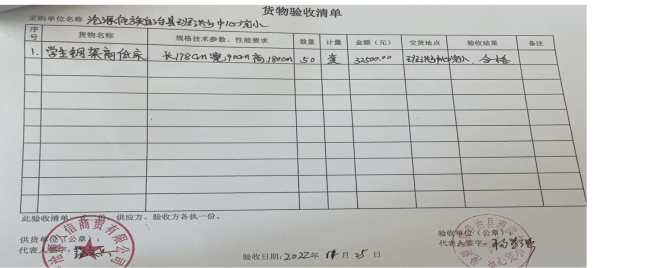 货物验收清单
采购单位名称 沧源佤族自治县班洪乡中心完小
序号 货物名称 规格技术参数、性能要求 数量 计量 金额（元） 交货地点 验收结果 备注
1. 学生钢架高低床 长178cm宽90cm高180cm 50 套 32500.00 班洪乡中心完小 合格
此验收清单一式 份，供应方、验收方各执一份。
供货单位（公章）： 验收单位（公章）：
代表人签字： 代表人签字：
验收日期：2022年 月25日